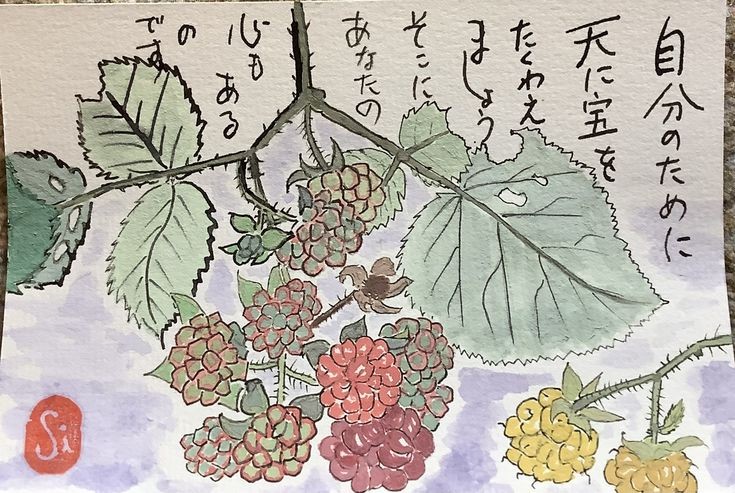 自分のために
天に宝を
たくわえ
ましょう
そこに
あなたの
心も
ある
の
です
Si